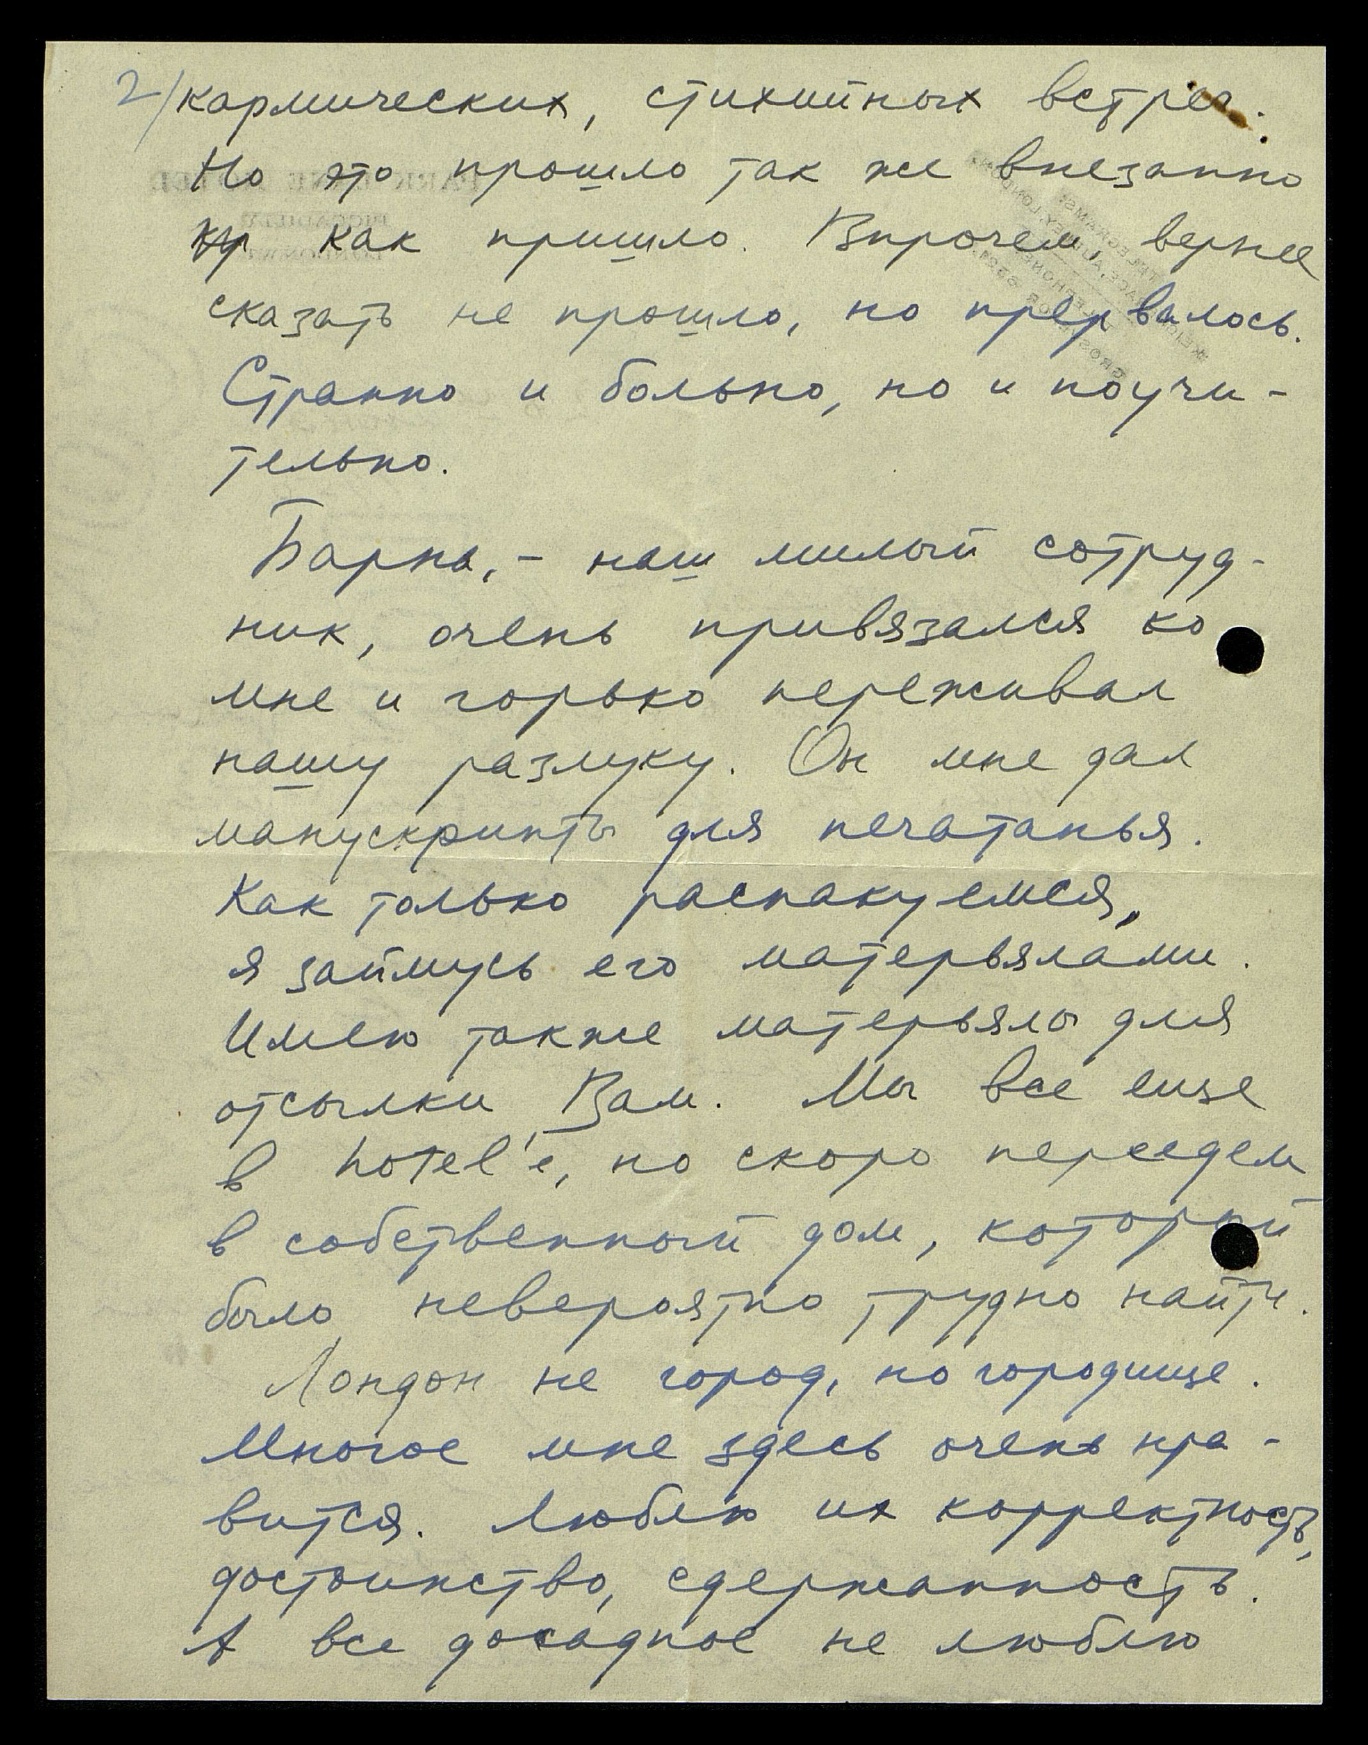 2/ кармических, стихийных встреч.
Но это прошло так же внезапно
как пришло. Впрочем, вернее
сказать не прошло, но прервалось.
Странно и больно, но и поучи-
тельно.
Барнь, - наш милый сотруд-
ник, очень привязался ко
мне и горько переживал
нашу разлуку. Он мне дал
манускрипты для печатанья.
Как только распакуемся,
я займусь его матерьялами.
Имею также матерьялы для
отсылки Вам. Мы все еще
в hotel'е, но скоро переедем
в собственный дом, который
было невероятно трудно найти.
Лондон не город, но городище.
Многое мне здесь очень нра-
вится. Люблю их корректность,
достоинство, сдержанность.
А все досадное не люблю
PARK LANE HOTEL
PICCADILLY
LONDON W.1
TELEGRAMS: